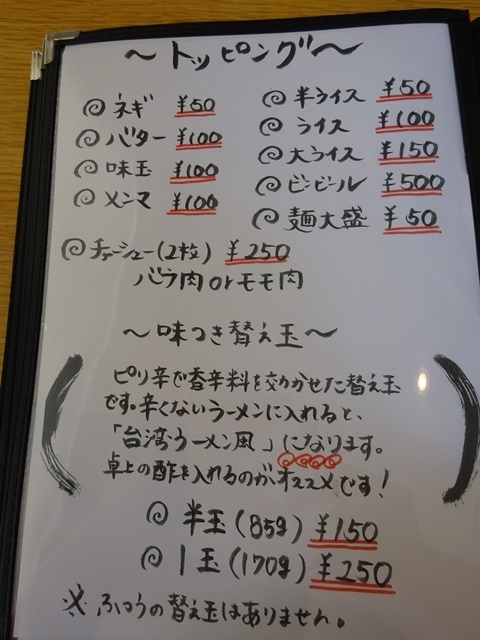 ～トッピング～
ネギ ¥50
バター ¥100
味玉 ¥100
メンマ ¥100
半ライス ¥50
ライス ¥100
大ライス ¥150
ビンビール ¥500
麺大盛 ¥50
チャーシュー(2枚) ¥250
バラ肉orモモ肉
～味つき替え玉～
ピリ辛で香辛料を効かせた替え玉
です。辛くないラーメンに入れると、
「台湾ラーメン風」になります。
卓上の酢を入れるのがオススメです!
半玉(85g) ¥150
1玉(170g) ¥250
※ふつうの替え玉はありません。